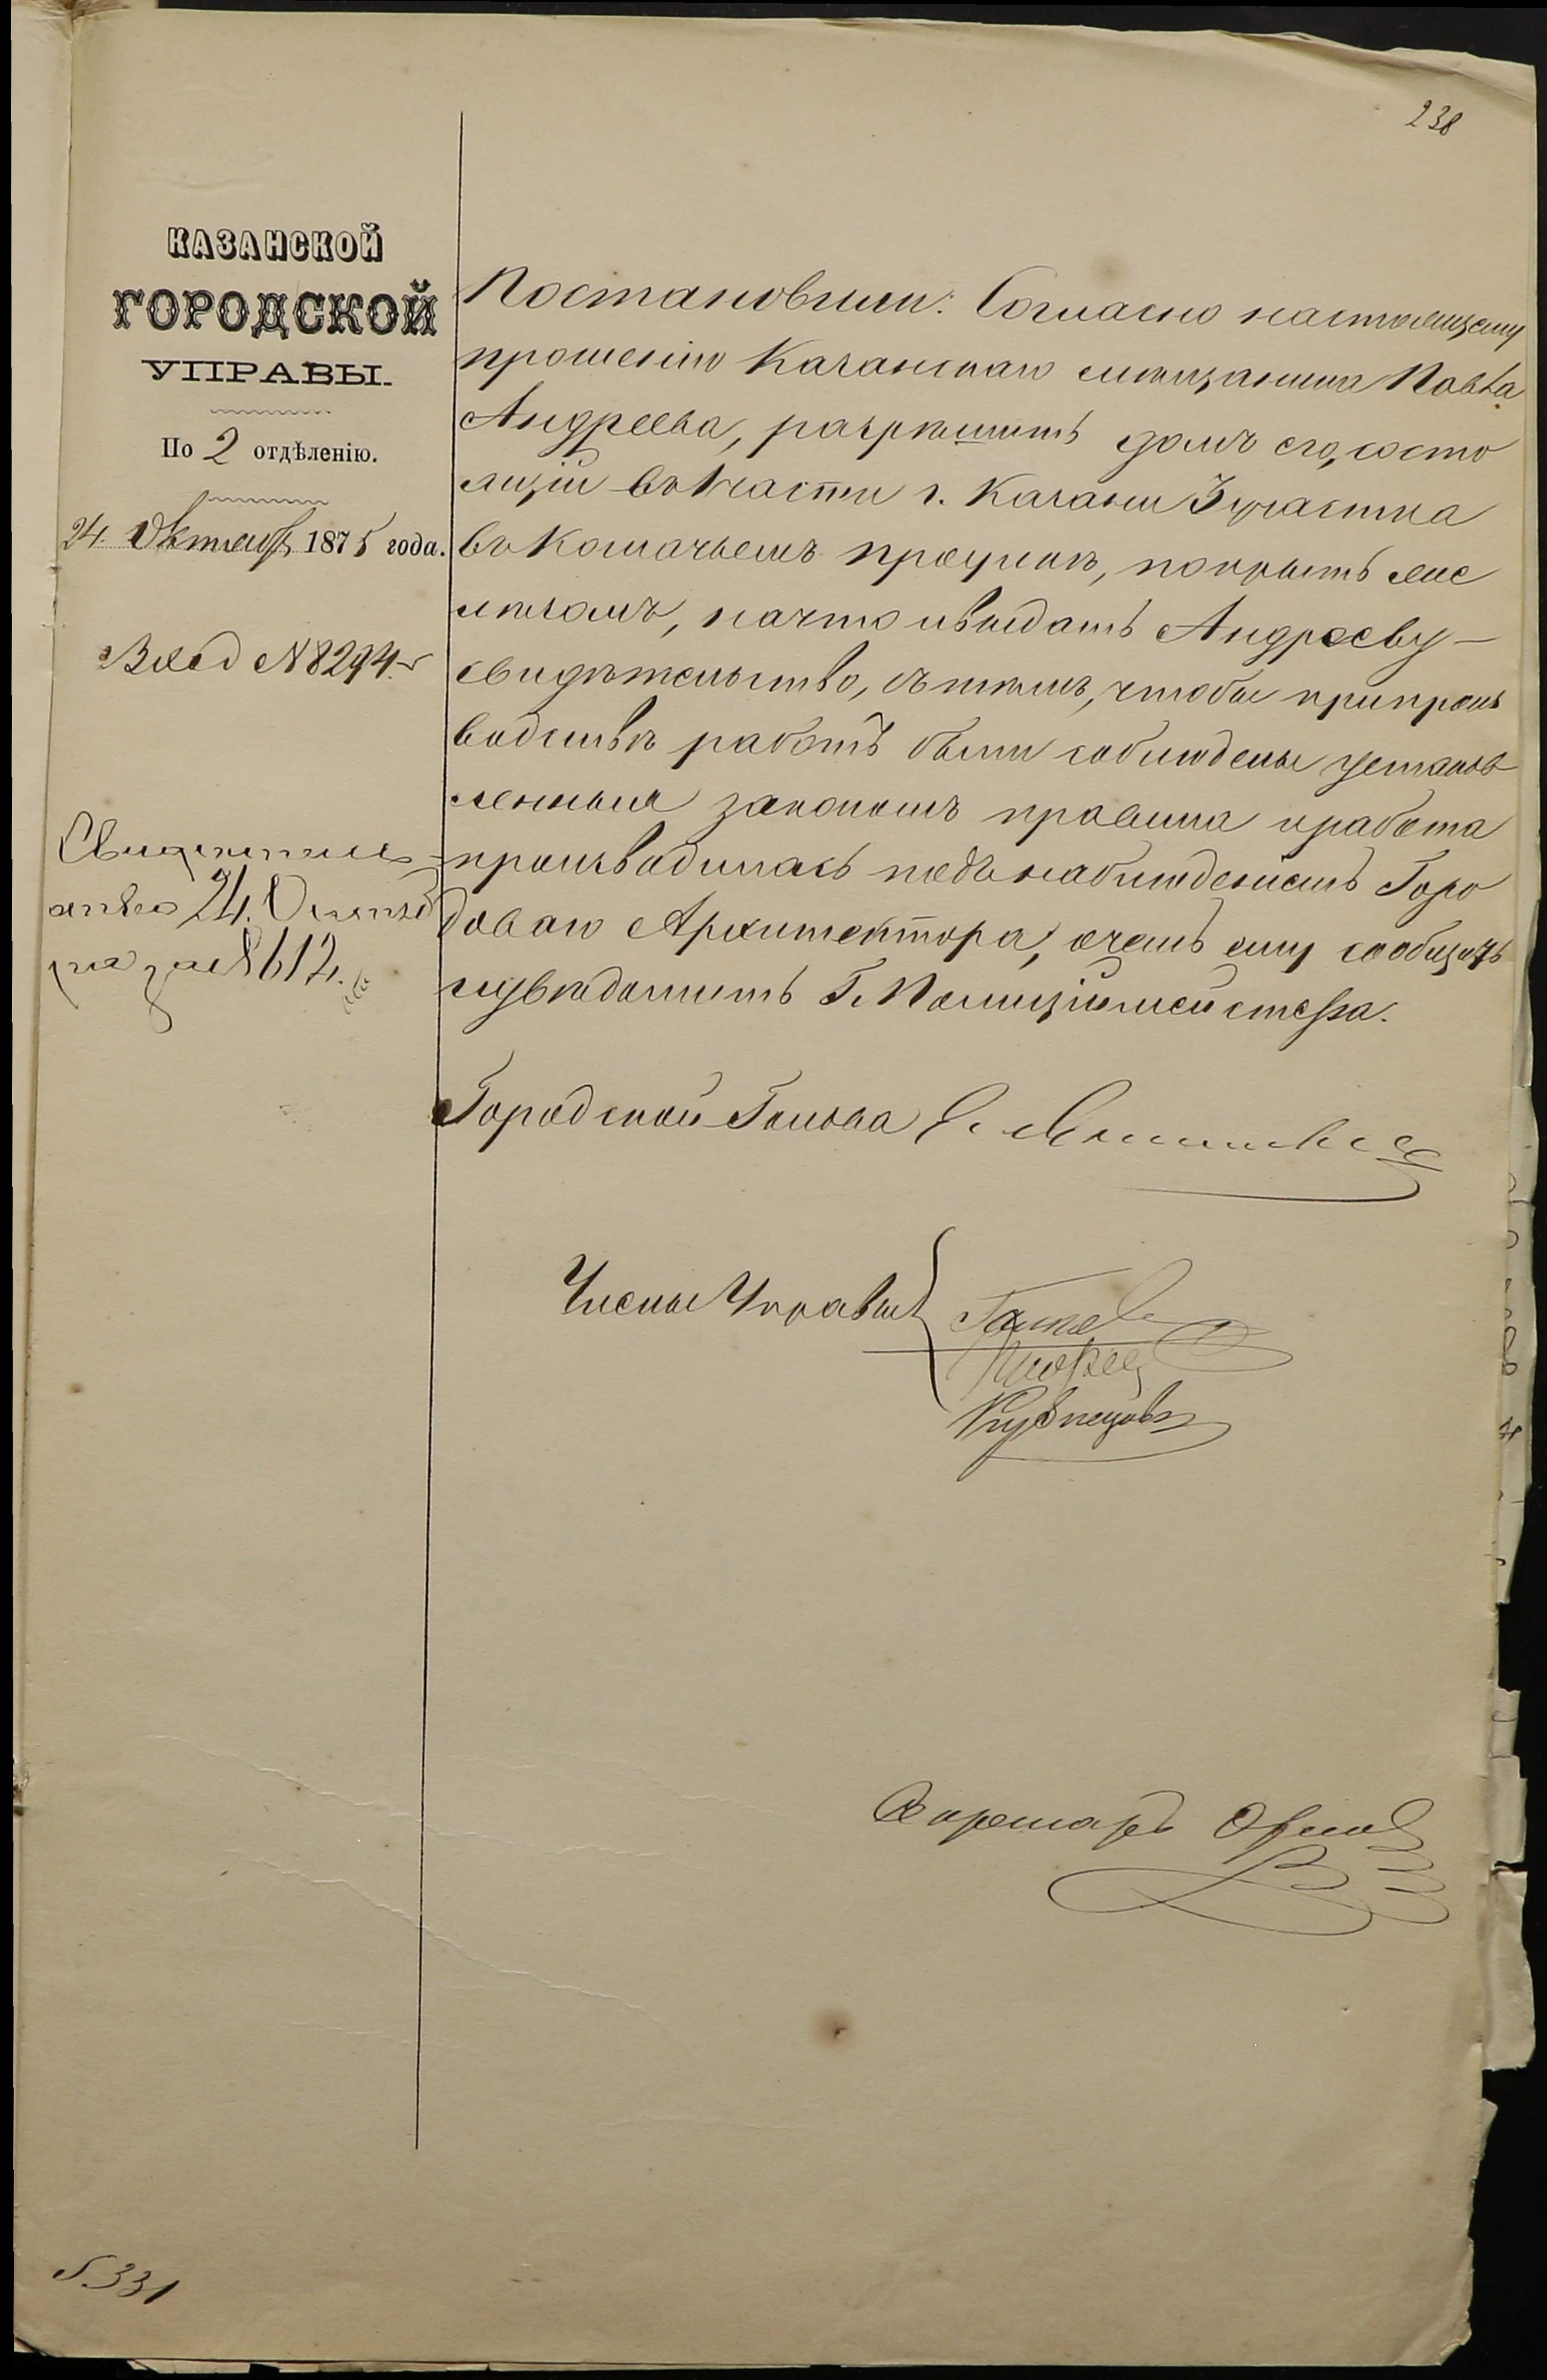 238
КАЗАНСКОЙ
ГОРОДСКОЙ
УПРАВЫ.
По 2 отдѣленію.
24 Октября 1875 года.
Вход № 8294.
Свидѣтель
24. Октяб
за № 8612.
Постановили: Согласно настоящему
прошенію Казанскаго мѣщанина Павла
Андреева, разрѣшить домъ его, состо
ящій въ части г. Казани 3 участка
въ переулкѣ, покрыть же
лѣзомъ, на что и выдать Андрееву
свидѣтельство, съ тѣмъ, чтобы при произ
водствѣ работъ были соблюдены установ
ленныя закономъ правила и работа
производилась подъ наблюденіемъ Горо
доваго Архитектора, о чемъ ему сообщить
и увѣдомить Г. Полиціймейстера.
Городской Голова
Члены Управы
Кузнецовъ
Секретарь Орлов
331